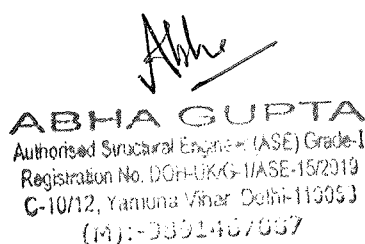 Abha
ABHA GUPTA
Authorised Structural Engineer (ASE) Grade-I
Registration No. DOH-UK/G-1/ASE-15/2019
C-10/12, Yamuna Vihar Delhi-110053
(M):-